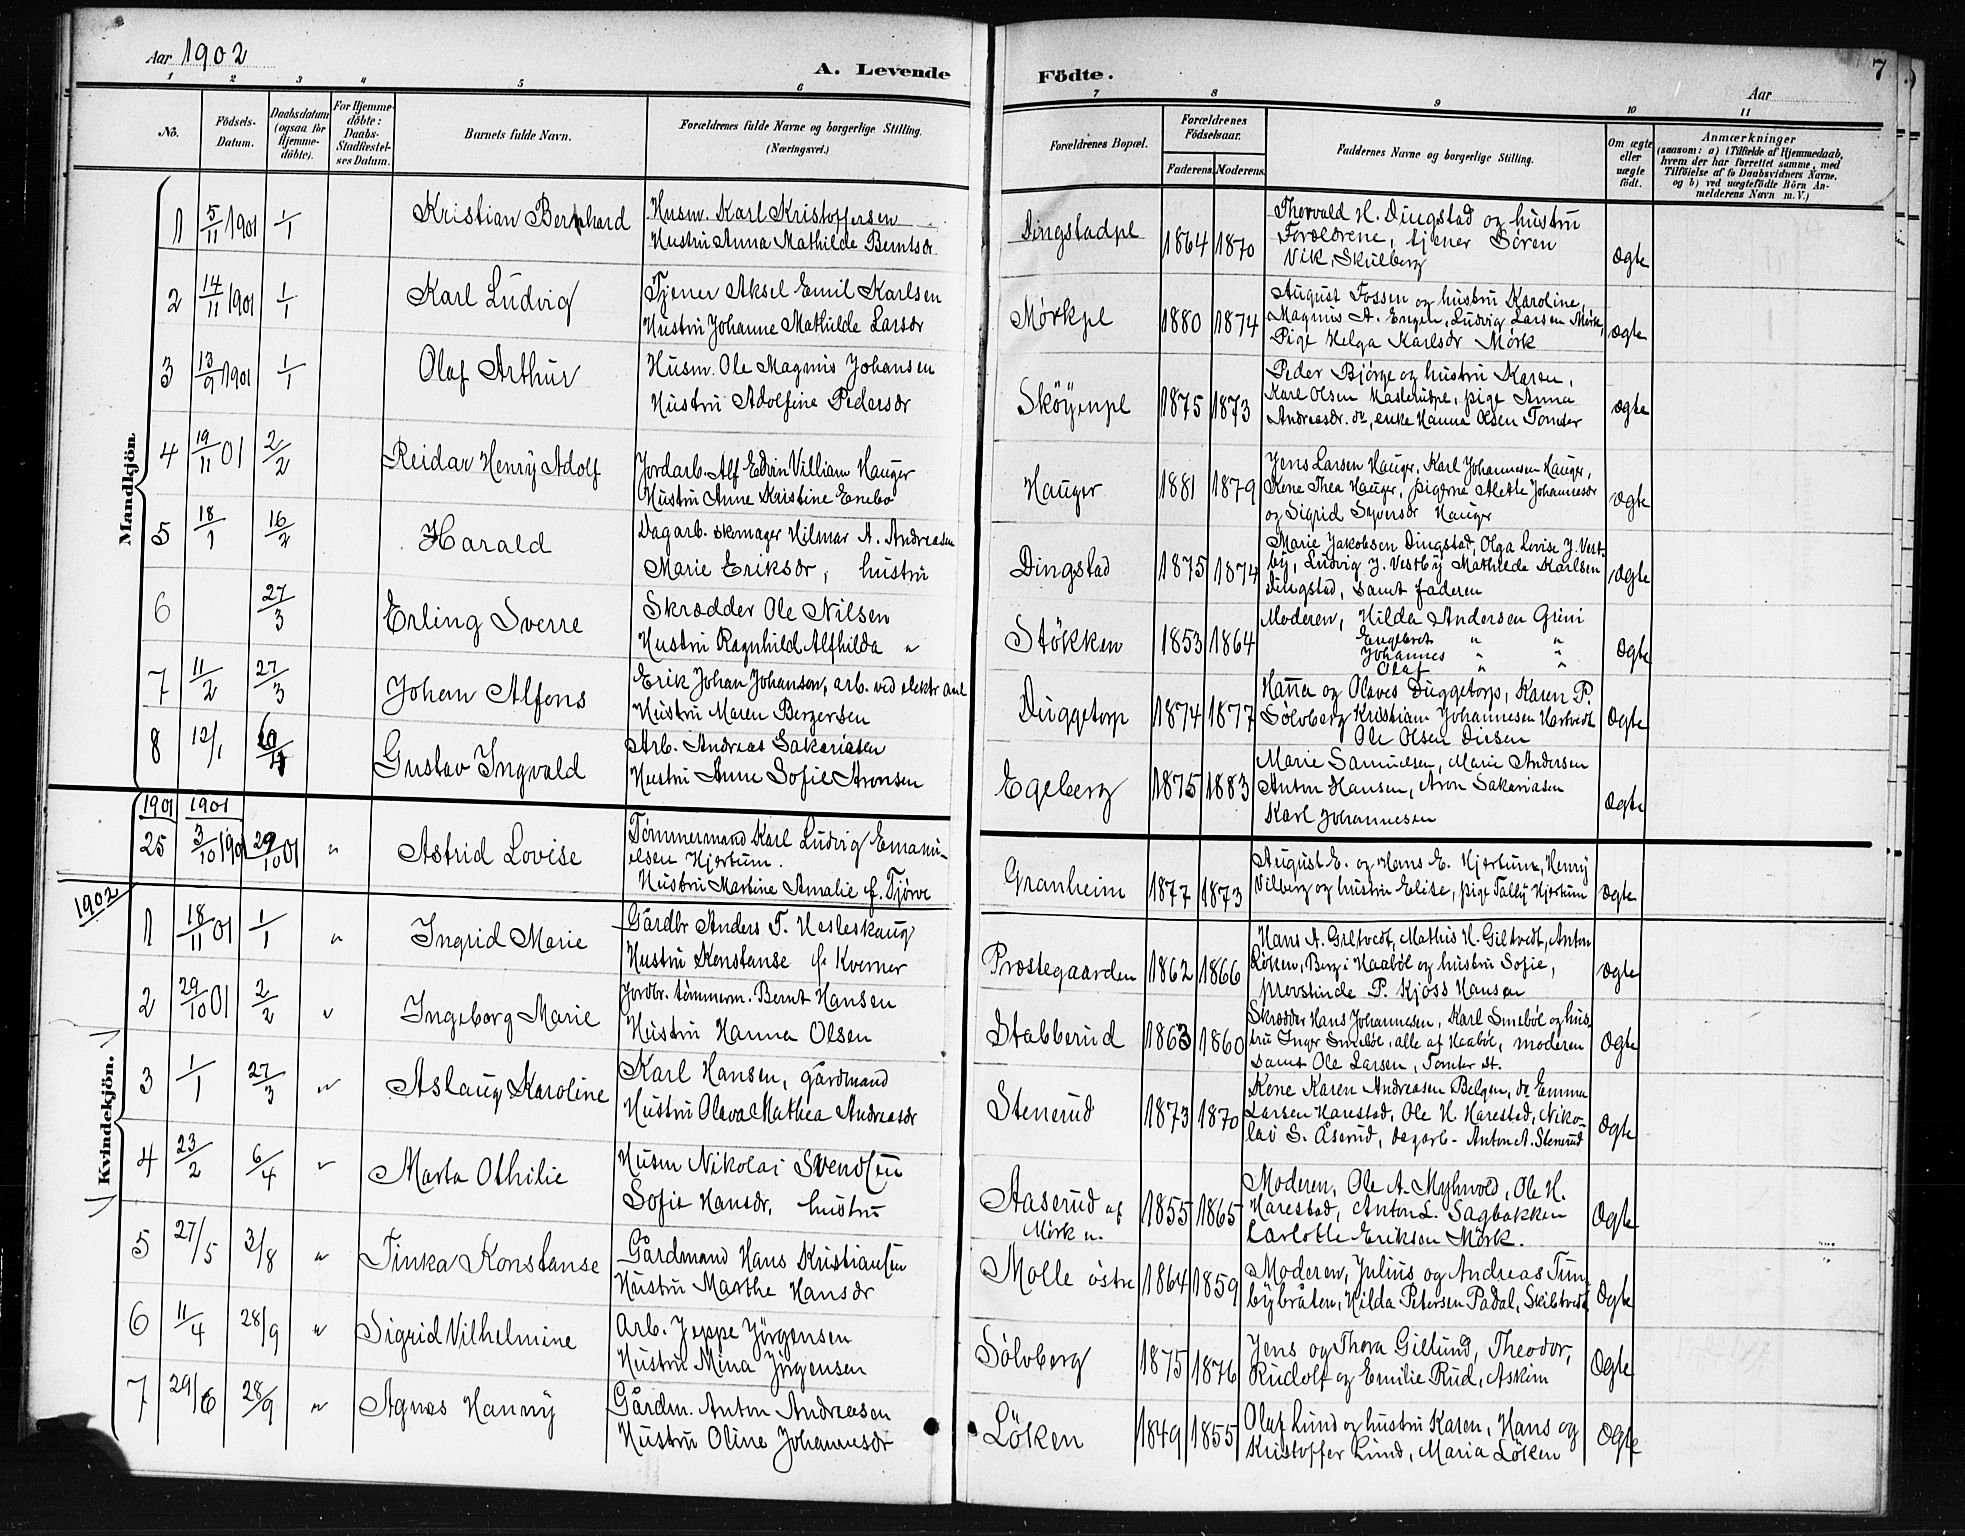 Aar 1902
A. Levende
1 2 3 4 5 6
No.
Födsels-Datum.
Daabsdatum (ogsaa for Hjemme-döbte).
For Hjemme-döbte: Daabs-Stadfæstel-ses Datum.
Barnets fulde Navn.
Forældrenes fulde Navne og borgerlige Stilling. (Næringsvei.)
Mandkjön.
1 5/11 1901 1/1 Kristian Bernhard Husm. Karl Kristoffersen
Hustru Anna Mathilde Berntsdr
2 14/11 1901 1/1 Karl Ludvig Tjener Aksel Emil Karlsen
Hustru Johanne Mathilde Larsdr
3 13/9 1901 1/1 Olaf Arthur Husm. Ole Magnus Johansen
Hustru Adolfine Pedersdr
4 19/11 01 2/2 Reidar Henry Adolf Jordarb. Alf Edvin Villiam Hauger
Hustru Anne Kristine Enebo
5 18/1 16/2 Harald Dagarb. skomager Hilmar A. Andreasen
Marie Eriksdr, hustru
6 27/3 Erling Sverre Skrædder Ole Nilsen
Hustru Ragnhild Alfhilda "
7 11/2 27/3 Johan Alfons Erik Johan Johanson, arb. ved elektr anl
Hustru Maren Bergersen
8 12/1 Gustav Ingvald Arb. Andreas Sakariasen
Hustru Anne Sofie Aronsen
1901 1901
25 3/10 1901 29/10 01 " Astrid Lovise Tømmermand Karl Ludvig Emanu-
elsen Hjertum.
Hustru Martine Amalie f. Tjörve
1902
Kvindekjön.
1 18/11 01 1/1 " Ingrid Marie Gårdbr Anders T. Hesleskaug
Hustru Konstanse f. Kverner
2 29/10 01 2/2 " Ingeborg Marie Jordbr. tømmerm. Bernt Hansen
Hustru Hanna Olsen
3 1/1 27/3 " Aslaug Karoline Karl Hansen, gårdmand
Hustru Olava Mathea Andreasdr
4 23/2 6/4 " Marta Othilie Husm Nikolai Svendsen
Sofie Hansdr, hustru
5 27/5 3/8 " Tinka Konstanse Gårdmand Hans Kristiansen
Hustru Marthe Hansdr
6 11/4 28/9 " Sigrid Vilhelmine Arb. Jeppe Jörgensen
Hustru Mina Jörgensen
7 29/6 28/9 " Agnes Hanny Gårdm. Anton Andreasen
Hustru Oline Johannesdr
7
Födte.
Aar
7 8 9 10 11
Forældrenes Bopæl.
Forældrenes Födselsaar.
Faderens. Moderens.
Faddernes Navne og borgerlige Stilling.
Om ægte eller uægte födt.
Anmærkninger
(saasom: a) i Tilfælde af Hjemmedaab, hvem der har forrettet samme, med Tilföielse af to Daabsvidners Navne, og b) ved uægtefödte Börn An-melderens Navn m. V.)
Dingstadpl 1864 1870 Thorvald H. Dingstad og hustru
Forældrene, tjener Sören
Vik, Skulberg ægte
Mørkpl 1880 1874 August Fossen og hustru Karoline,
Magnus A. Engen, Ludvig Larsen Mørk,
Pige Helga Karlsdr Mørk ægte
Sköyenpl 1875 1873 Peder Bjørge og hustru Karen,
Karl Olsen Haslehuspl, pige Anna
Andreasdr. do, enke Hanna Olsen Tomter ægte
Hauger 1881 1879 Jens Larsen Hauger, Karl Johannesen Hauger,
Kone Thea Hauger, pigerne Alette Johannesdr
og Sigrid Syversdr Hauger ægte
Dingstad 1875 1874 Marie Jakobsen Dingstad, Olga Lovise J. Vest-
by, Ludvig J. Vestby Mathilde Karlsen
Dingstad, samt faderen ægte
Stökken 1853 1864 Moderen, Hilda Andersen Grini
Engebret " "
Johannes " "
Olaf " " ægte
Duggetorp 1874 1877 Hanna og Olaves Duggetorp, Karen P.
Sølvberg Kristiane Johannesen Hartvedt
Ole Olsen Diesen ægte
Egeberg 1875 1883 Marie Samuelsen, Marie Andersen
Anton Hansen, Aron Sakariasen
Karl Johannesen ægte
Granheim 1877 1873 August E. og Hans E. Hjertum, Henry
Vilberg og hustru Elise, pige Tally Hjertum ægte
Præstegaarden 1862 1866 Hans A. Giltvedt, Mathis H. Giltvedt, Anton
Løken, Berg i Haabøl og hustru Sofie,
provstinde P. Kjöss Hansen ægte
Stabberud 1863 1860 Skrædder Hans Johannesen, Karl Smebøl og hus-
tru Inger Smebøl, alle af Haabøl, moderen
samt Ole Larsen, Tomter st. ægte
Stenerud 1873 1870 Kone Karen Andreasen Belgen, do Emma
Larsen Harestad, Ole H. Harestad, Niko-
lai S. Åserud, dagarb. Anton A. Stenerud ægte
Aaserud af
Mörk n. 1855 1865 Moderen, Ole A. Myhrvold, Ole H.
Harestad, Anton L. Sagbakken
Carlotte Eriksen Mörk. ægte
Molle östre 1864 1859 Moderen, Julius og Andreas Tom-
bybråten, Hilda Petersen Padal, Skibtvedt ægte
Sølvberg 1875 1876 Jens og Thora Gillund, Theodor,
Rudolf og Emilie Rud, Askim ægte
Löken 1849 1855 Olaf Lund og hustru Karen, Hans og
Kristoffer Lund, Maria Löken ægte